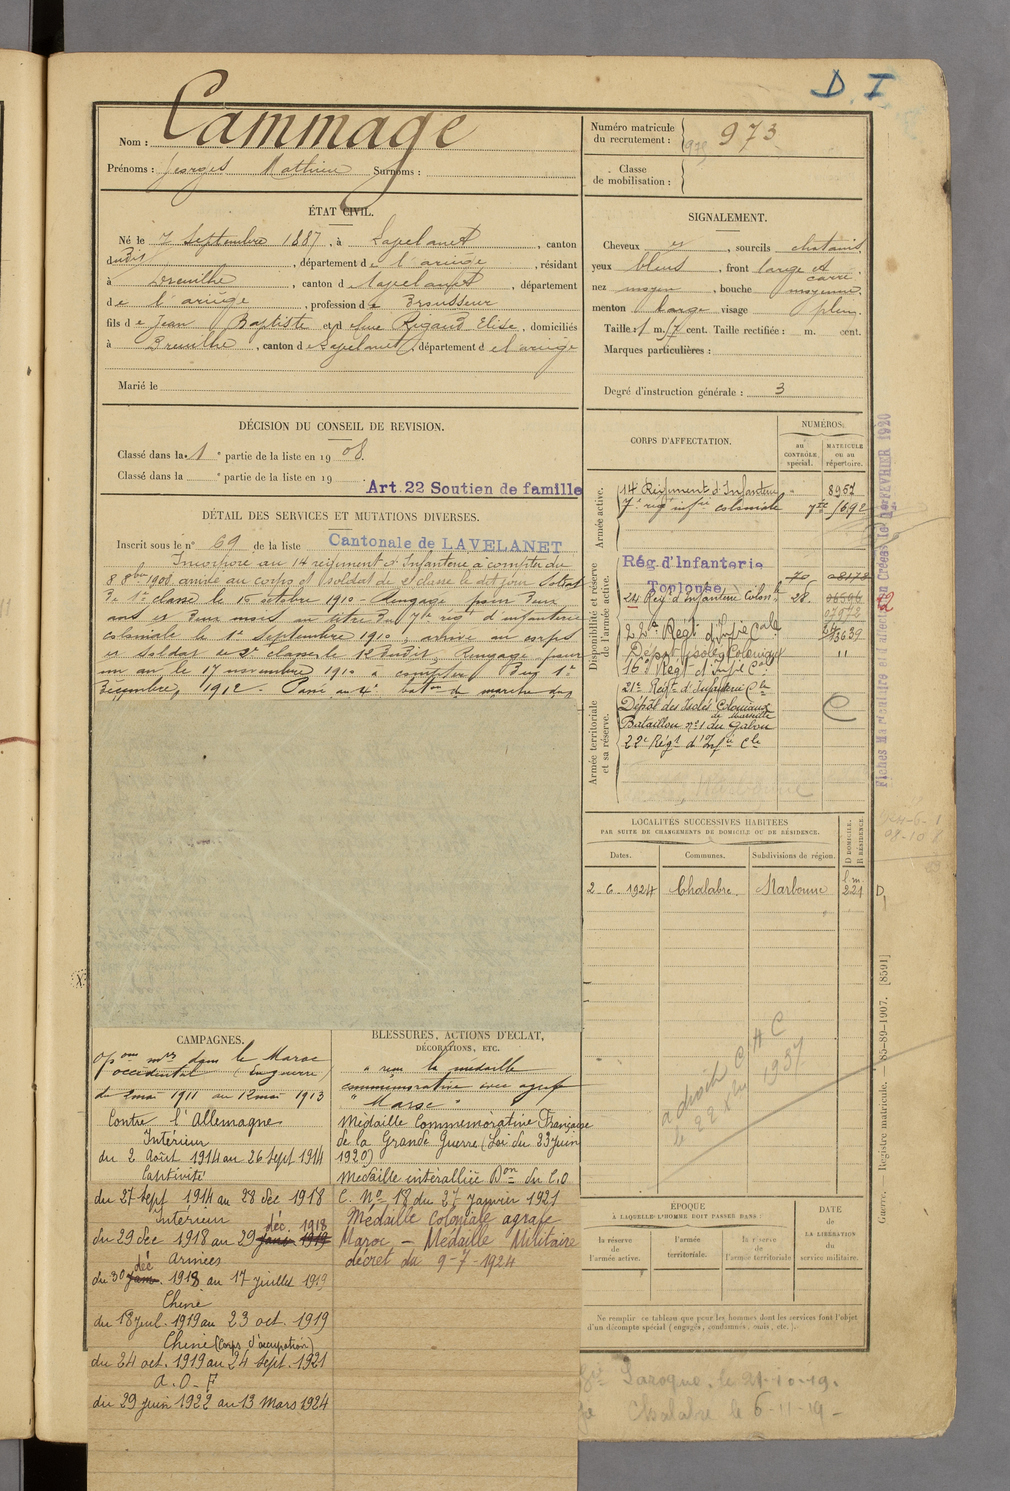 D. I
Nom : Cammage
Prénoms : Georges Mathieu Surnoms :
Numéro matricule
du recrutement : 973
Classe
de mobilisation :
ÉTAT CIVIL.
Né le 7 Septembre 1887, à Lavelanet, canton
dudit, département de l'ariège, résidant
à Dreuilhe, canton de Lavelanet, département
de l'ariège, profession de Brousseur
fils de Jean Baptiste et de feue Rigaud Elise, domiciliés
à Dreuilhe, canton de Lavelanet, département de l'ariège
Marié le
SIGNALEMENT.
Cheveux et, sourcils chatains,
yeux bleus, front large et carré
nez moyen, bouche moyenne,
menton large visage plein.
Taille : 1 m. 7 cent. Taille rectifiée : m. cent.
Marques particulières :
Degré d'instruction générale : 3
DÉCISION DU CONSEIL DE REVISION.
Classé dans la 1e partie de la liste en 1908.
Classé dans la e partie de la liste en 19
Art. 22 Soutien de famille
DÉTAIL DES SERVICES ET MUTATIONS DIVERSES.
Inscrit sous le n° 69 de la liste Cantonale de LAVELANET
Incorporé au 14 régiment d'Infanterie à compter du
8 8bre 1908, arrivé au corps et soldat de 2e classe le dit jour Soldat
de 1e classe le 10 octobre 1910 - Rengagé pour deux
ans et deux mois au titre du 7e régt d'infanterie
coloniale le 1er Septembre 1910, arrivé au corps
et soldat de 2e classe le 12 dudit, Rengagé pour
un an le 17 novembre 1910 à compter du 1er
Décembre 1912. Passé au 4e baton de marche des
CORPS D'AFFECTATION.
NUMÉROS
au CONTRÔLE spécial.
MATRICULE ou au répertoire.
Armée active.
14e Régiment d'Infanterie " 8967
7e régt infie coloniale
Disponibilité et réserve de l'armée active.
Rég. d'Infanterie
Toulouse
24 Rég d'Infanterie Colonle 28.
22e Régt d'Infie Cale
Dépot Isolés Coloniaux "
16e Régt d'Infie Cle
Armée territoriale et sa réserve.
21e Régt d'Infanterie Cle
Dépôt des Isolés Coloniaux
de Marseille
Bataillon n°1 du Gabon
22e Régt d'Infie Cle
C
LOCALITÉS SUCCESSIVES HABITÉES
PAR SUITE DE CHANGEMENTS DE DOMICILE OU DE RÉSIDENCE.
Dates. Communes. Subdivisions de région. D DOMICILE. R RÉSIDENCE.
2-6-1924 Chalabre. Narbonne 221 D
a droit C H C
le 22 1937
CAMPAGNES.
opons mres dans le Maroc
occidental (En guerre)
du 2 mai 1911 au 12 mai 1913
Contre l'Allemagne
Intérieur
du 2 Août 1914 au 26 Sept 1914
Captivité
du 27 Sept 1914 au 28 déc 1918
Intérieur
du 29 déc 1918 au 29 déc. 1918
Armées
du 30 déc. 1918 au 17 juillet 1919
Chine
du 18 juil. 1919 au 23 oct. 1919
Chine (Corps d'occupation)
du 24 oct. 1919 au 24 Sept. 1921
A.O.F
du 29 juin 1922 au 13 Mars 1924
BLESSURES, ACTIONS D'ÉCLAT,
DÉCORATIONS, ETC.
a reçu la médaille
commémorative avec agrafe
"Maroc"
Médaille Commémorative Française
de la Grande Guerre (Loi du 23 Juin
1920)
Médaille interalliée Don du C.O
C. N° 18 du 27 Janvier 1921
Médaille Coloniale agrafe
Maroc – Médaille Militaire
décret du 9-7-1924
ÉPOQUE
À LAQUELLE L'HOMME DOIT PASSER DANS :
la réserve de l'armée active.
l'armée territoriale.
la réserve de l'armée territoriale
DATE
DE LA LIBÉRATION
du service militaire.
Ne remplir ce tableau que pour les hommes dont les services font l'objet
d'un décompte spécial (engagés, condamnés, omis, etc.).
Laroque. le 21-10-19.
Chalabre le 6-11-19-
Guerre. — Registre matricule. — 85-89-1907. [8591]